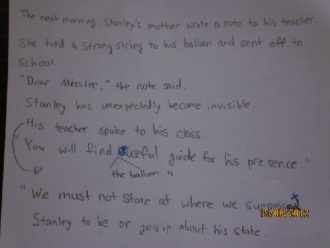 The next morning, Stanley's mother wrote a note to his teacher.
She tied a strong string to his balloon and sent off to
school.
"Dear Miss Lee," the note said.
Stanley has unexpectedly become invisible.
His teacher spoke to his class.
"You will find useful guide for his presence."
the balloon a
"We must not stare at where we suppose
Stanley to be or gossip about his state.